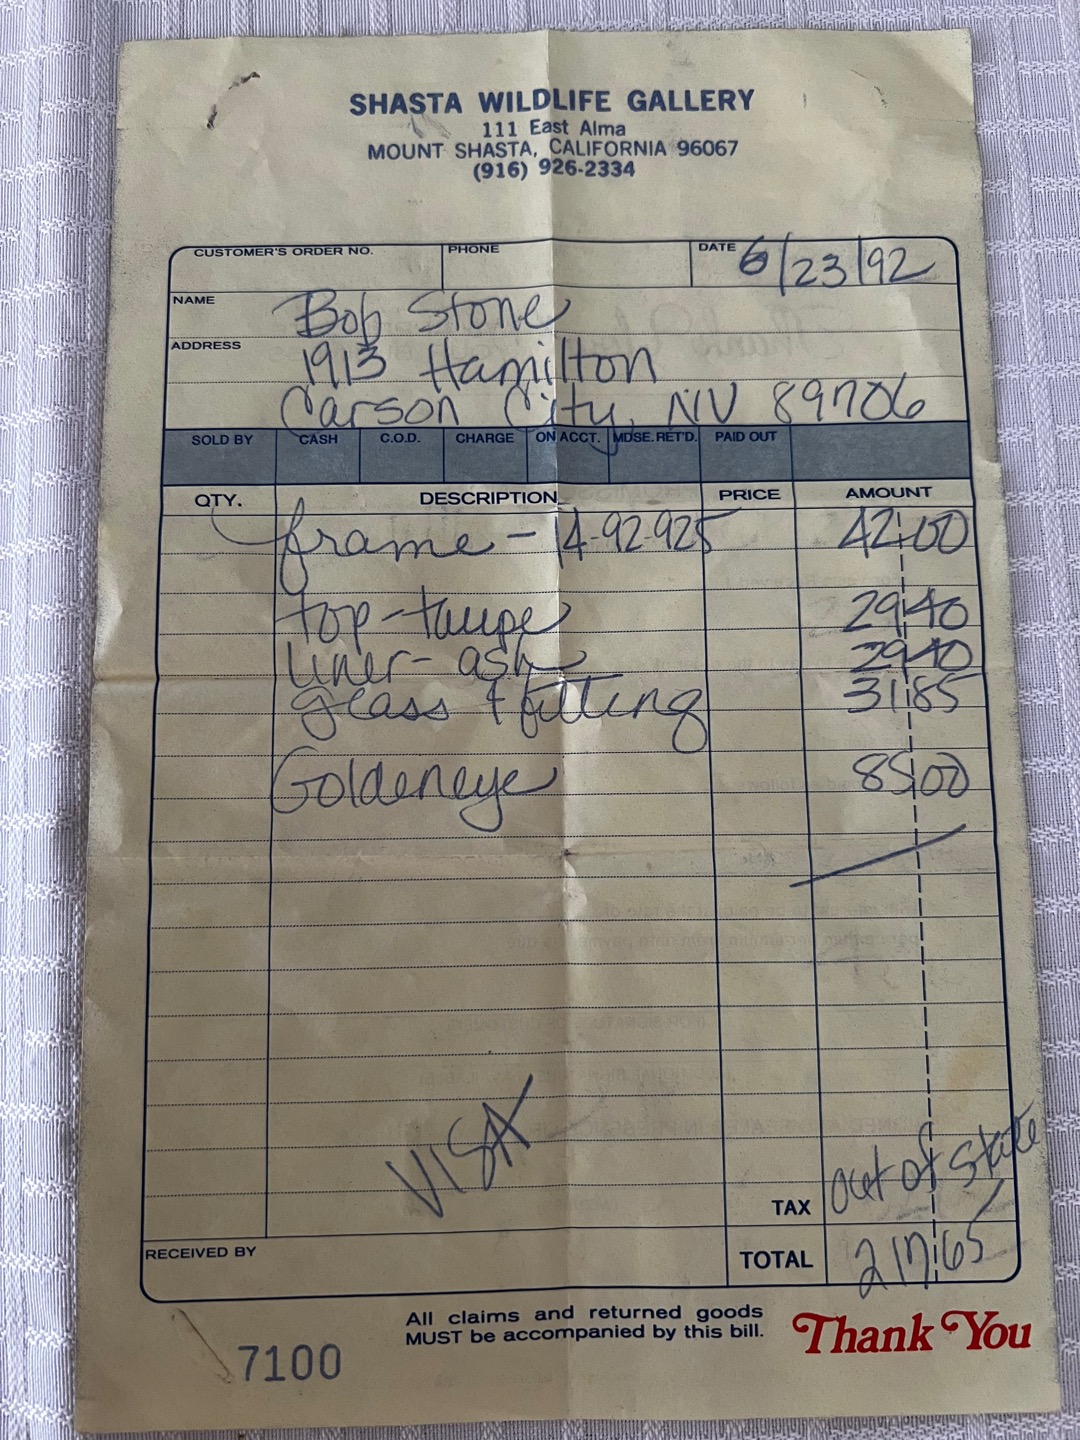 SHASTA WILDLIFE GALLERY
111 East Alma
MOUNT SHASTA, CALIFORNIA 96067
(916) 926-2334
CUSTOMER'S ORDER NO. PHONE DATE 6/23/92
NAME Bob Stone
ADDRESS 1913 Hamilton
Carson City, NV 89706
SOLD BY CASH C.O.D. CHARGE ON ACCT. MDSE. RET'D. PAID OUT
QTY. DESCRIPTION PRICE AMOUNT
frame - 14-92-925 42 00
top-taupe 29 40
liner- ash 29 40
glass + fitting 31 85
Goldeneye 85 00
VISA
TAX out of state
RECEIVED BY TOTAL 217 65
All claims and returned goods
MUST be accompanied by this bill.
Thank You
7100